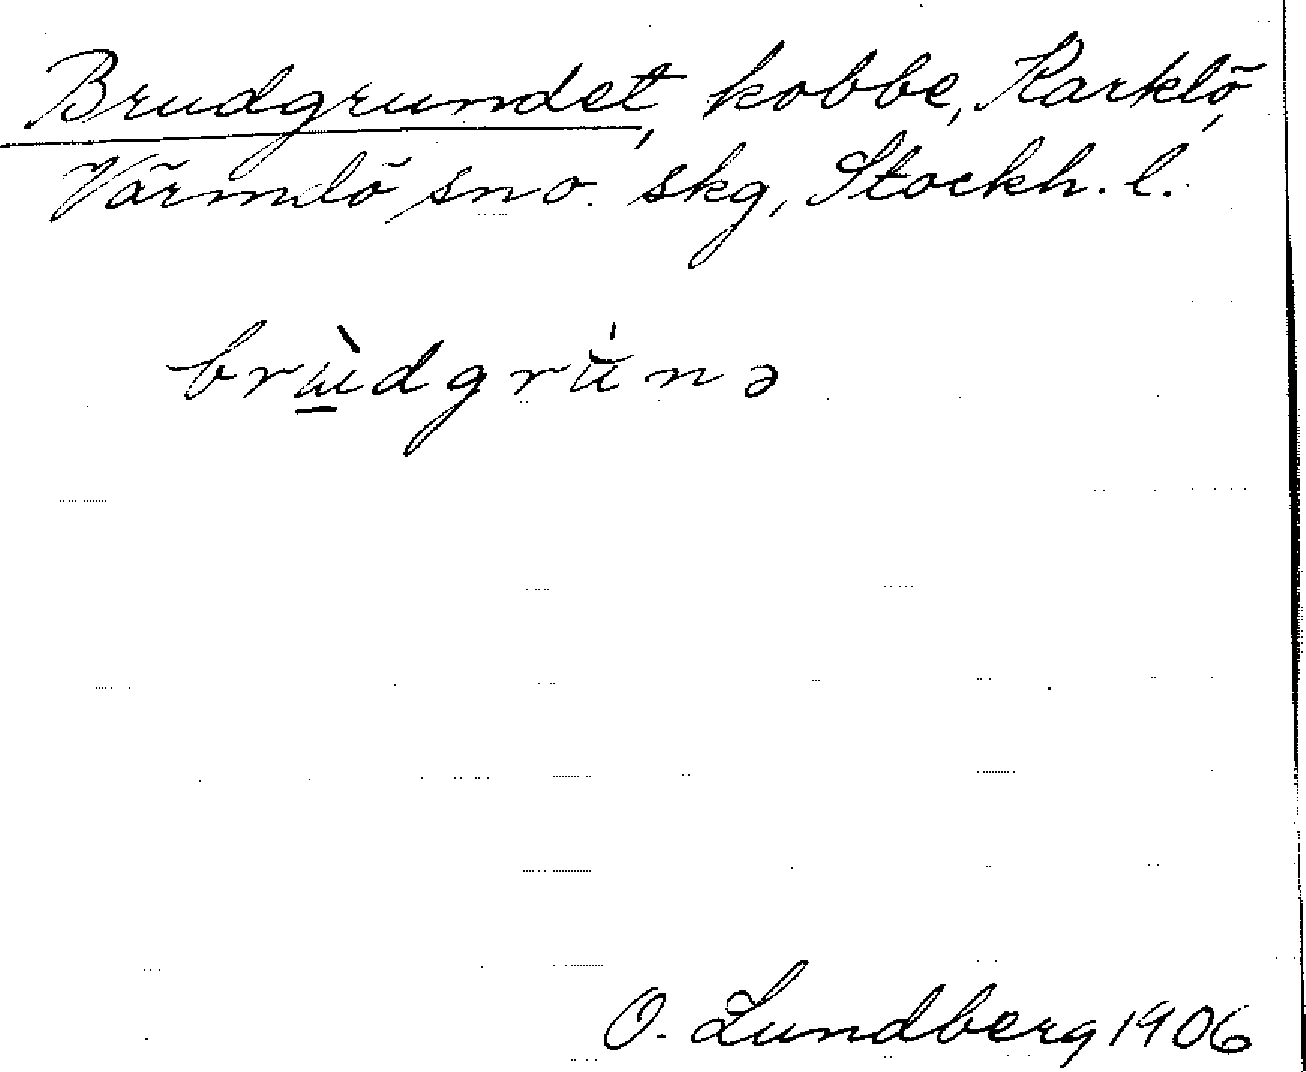 Brudgrundet, kobbe, Karklö,
Värmdö sn o. skg, Stockh. l.
brɯ̱̀dgrŭ̍nə
O. Lundberg 1906